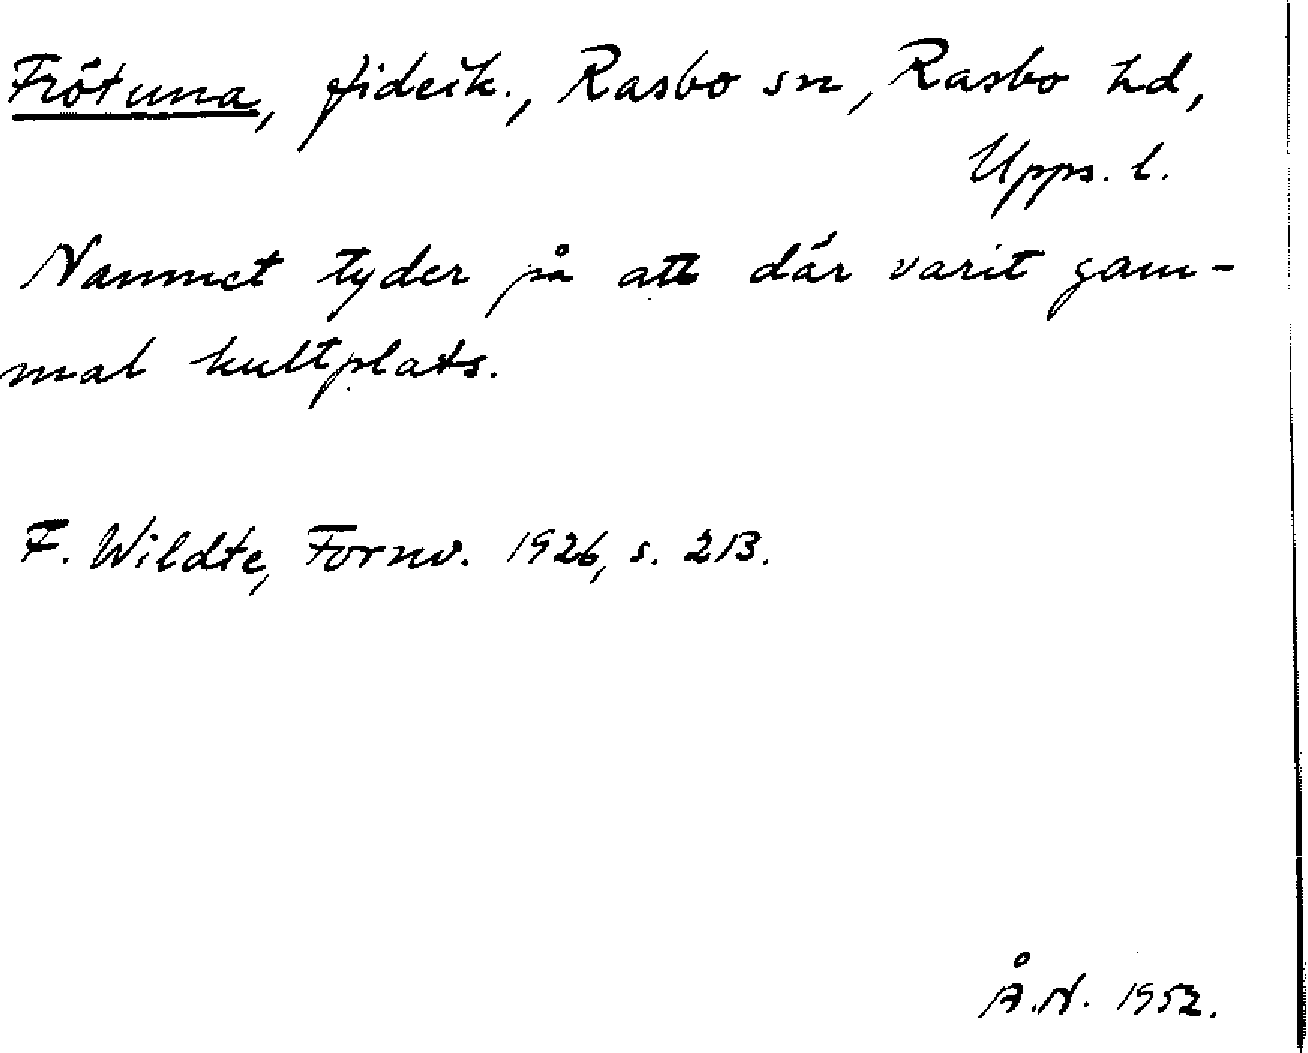 Frötuna, fideik., Rasbo sn, Rasbo hd,
Upps. l.
Namnet tyder på att där varit gam-
mal kultplats.
F. Wildte, Fornv. 1926, s. 213.
Å.N. 1952.